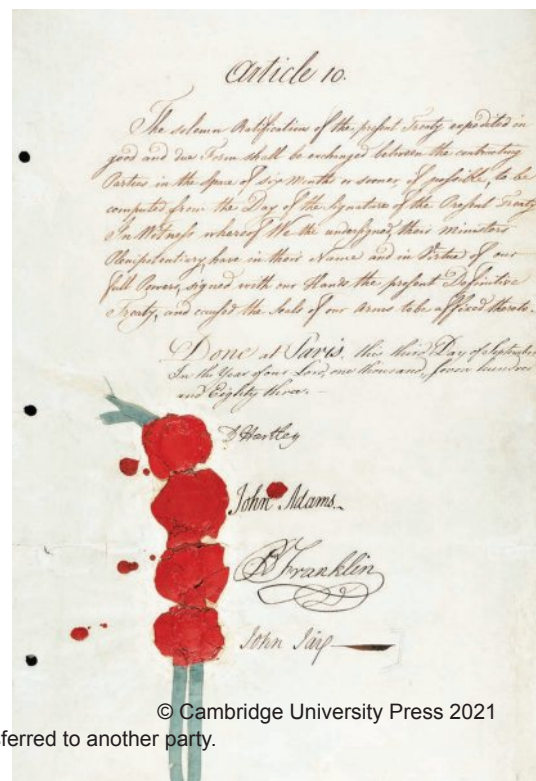 Article 10.
The solemn Ratifications of the present Treaty expedited in
good and due Form shall be exchanged between the contracting
Parties in the Space of six Months or sooner, if possible, to be
computed from the Day of the Signature of the Present Treaty
In Witness whereof We the undersigned, their ministers
Plenipotentiary, have in their Name and in Virtue of our
full Powers, signed with our Hands the present Definitive
Treaty, and caused the Seals of our Arms to be affixed thereto.
Done at Paris, this third Day of September
In the Year of our Lord, one thousand, seven hundred
and Eighty three.
D Hartley
John Adams
B Franklin
John Jay
© Cambridge University Press 2021
ferred to another party.